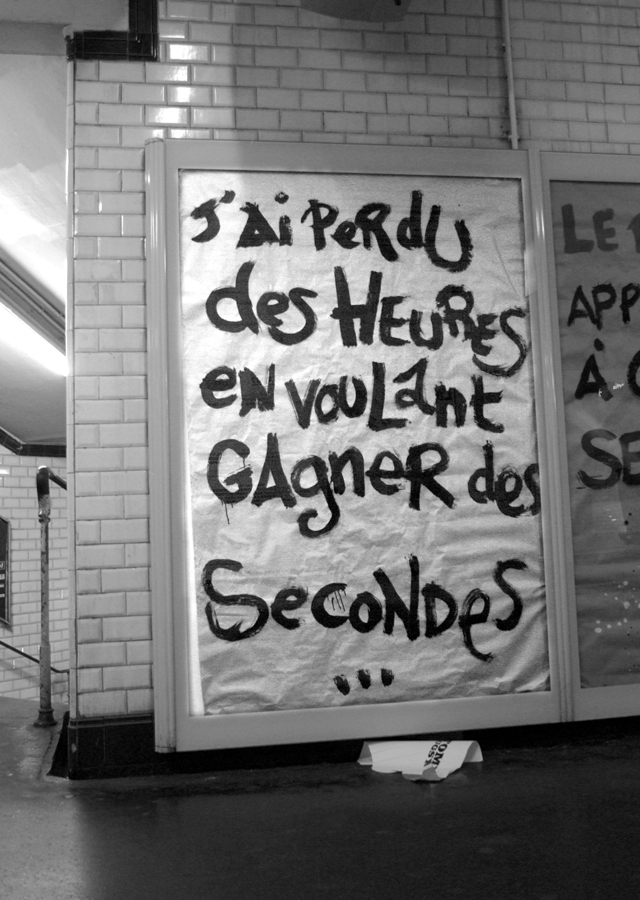 J'Ai PeRdU
des HEURES
eN VOULant
GAgneR des
SecoNDes
...
LE
APP
À
SE